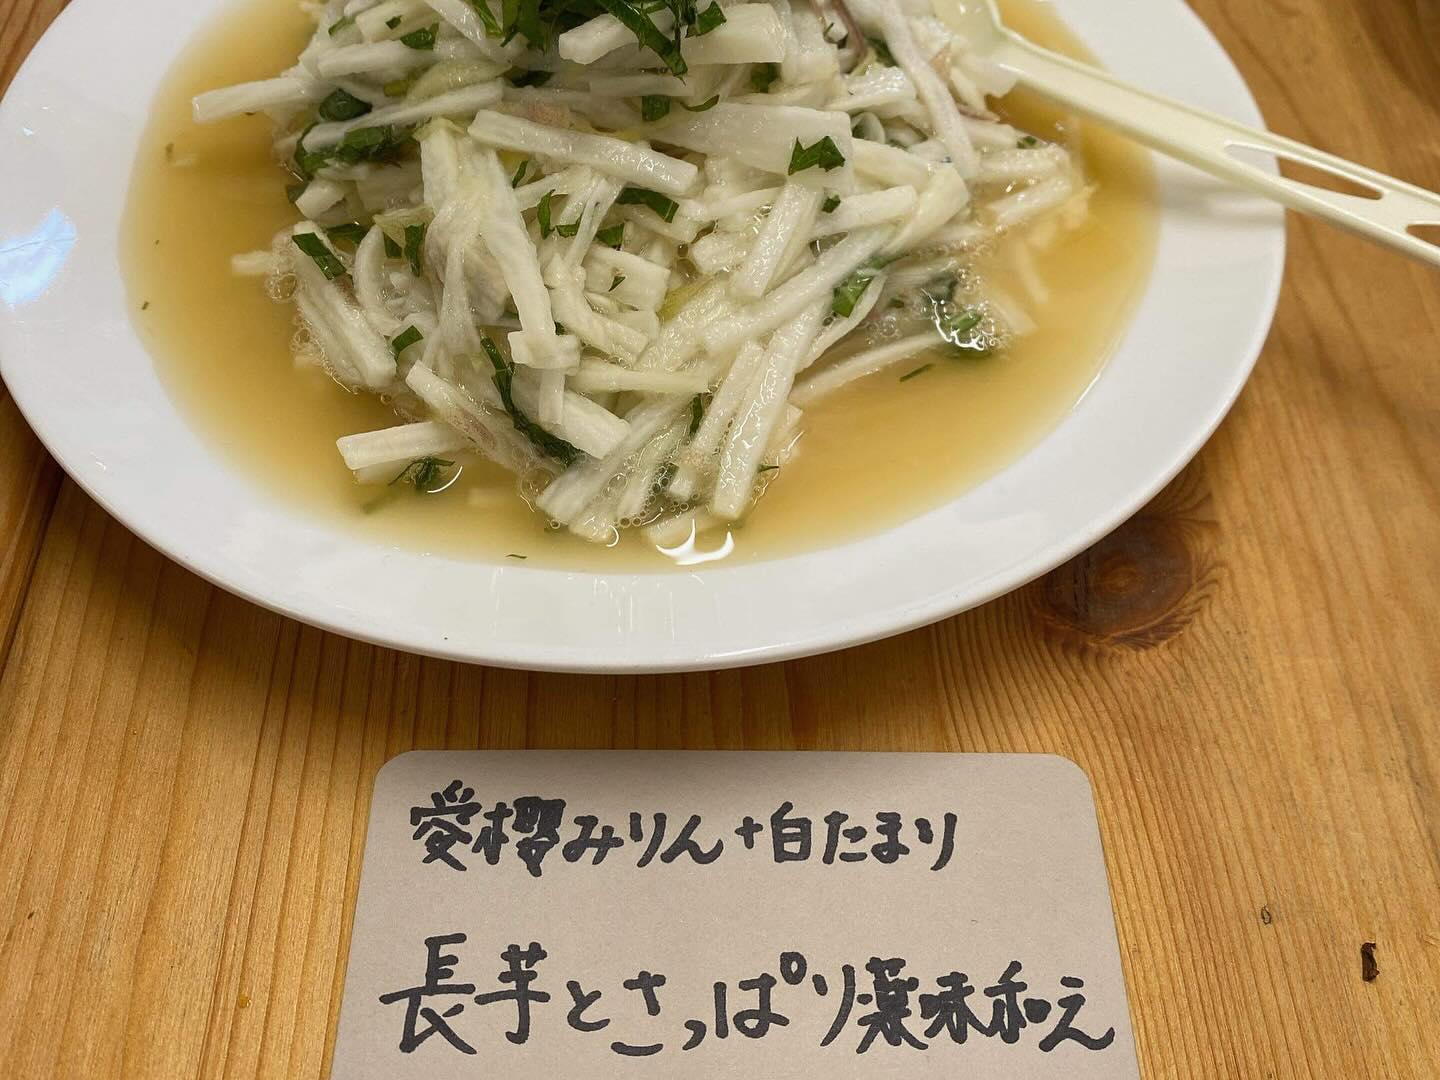 愛櫻みりん+白たまり
長芋とさっぱり薬味和え